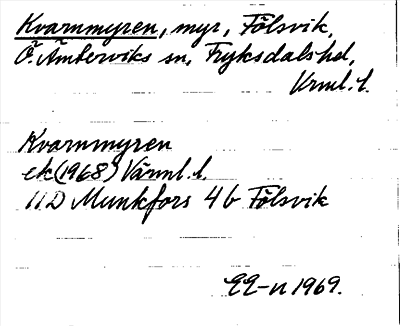 Kvarnmyren, myr, Fölsvik,
Ö. Ämterviks sn, Fryksdals hd,
Vrml. l.
Kvarnmyren
ek (1968) Värml. l.
11D Munkfors 4b Fölsvik
1969.